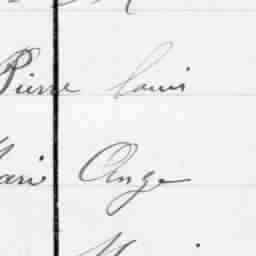 Pierre Louis
Marie Ange